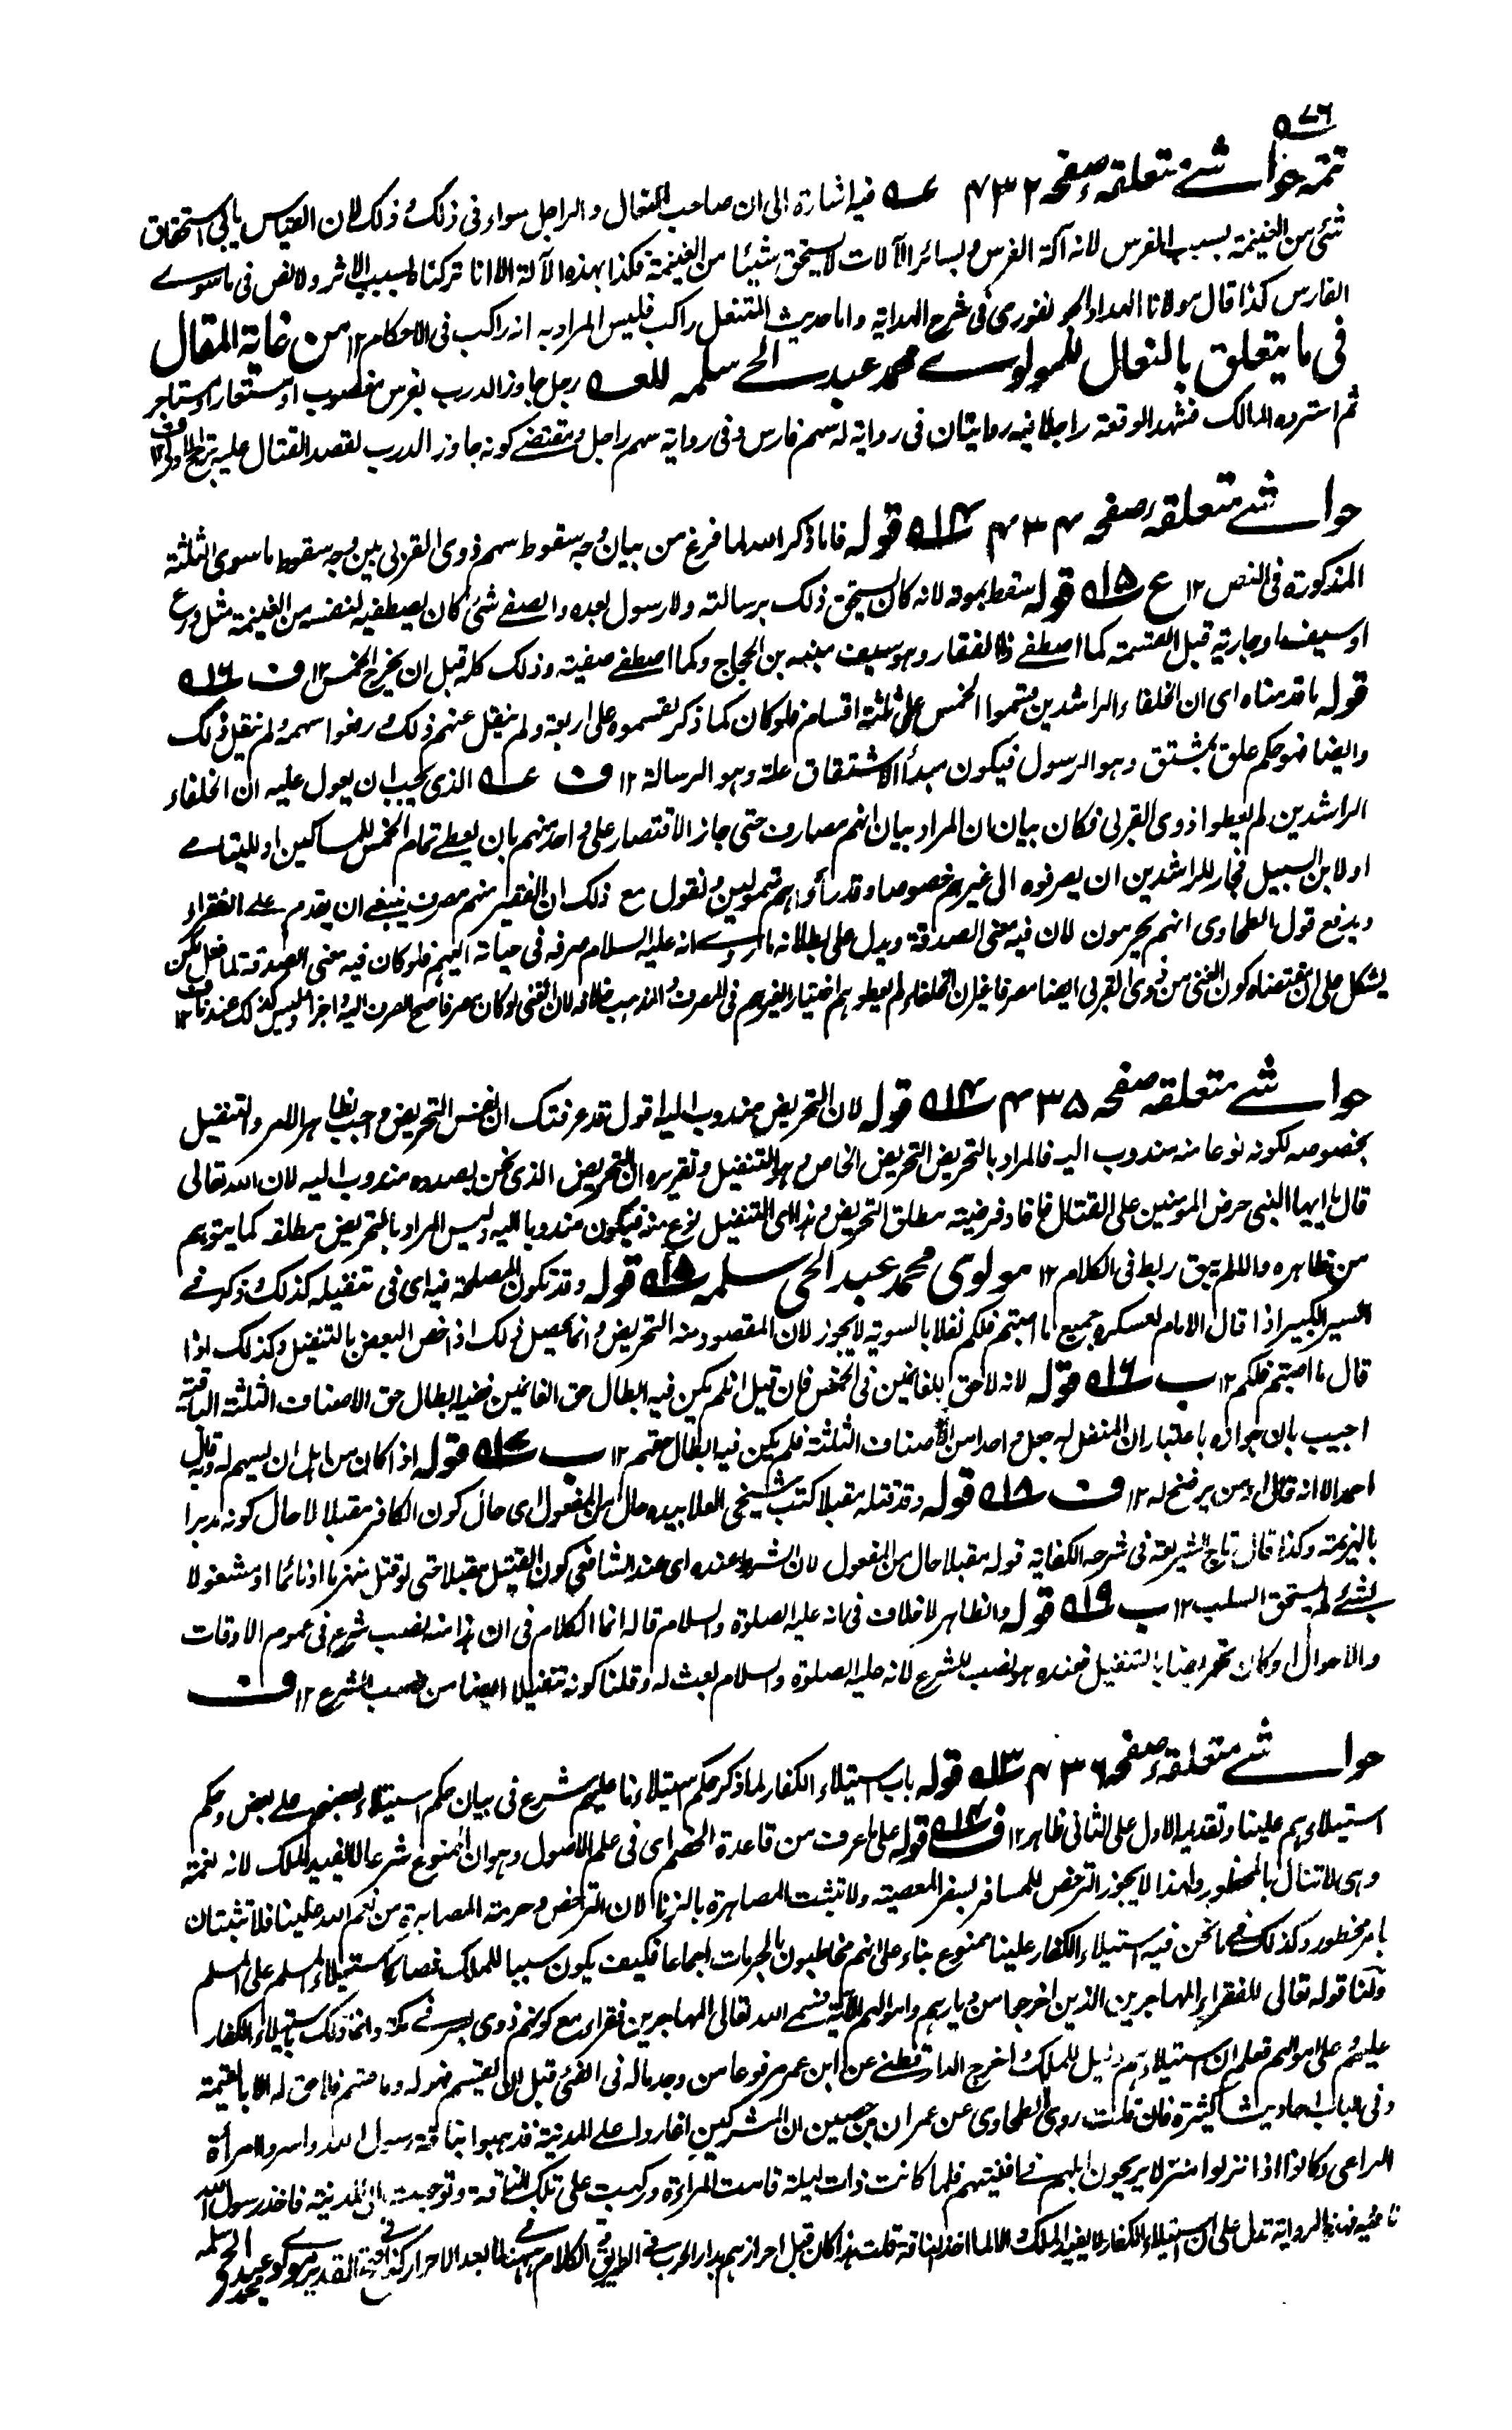 ٥٧٦
تتمه حواشے متعلقہ صفحہ ٤٣٢ عہ فيه اشارة الى ان صاحب النعال والراجل سواء فى ذلك وذلك لان القياس يابى استحقاق
شئ من الغنيمة بسبب الفرس لانه آلة الفرس وبسائر الآلات لا يستحق شيئا من الغنيمة فكذا بهذه الآلة الا انا تركناه بسبب الاثر ولا نص فى ما سوے
الفارس كذا قال مولانا الهداد الجونفورى فى شرح الهداية واما حديث المتنعل راكب فليس المراد به انه راكب فى الاحكام ١٢ من غاية المقال
فى ما يتعلق بالنعال للمولوے محمد عبد الحے سلمہ للعہ رجل جاوز الدرب بفرس مغصوب او مستعار او مستاجر
ثم استرده المالك فشهد الوقعة راجلا فيه روايتان فى رواية له سهم فارس وفى رواية سهم راجل ومقتضے كونه جاوز الدرب لقصد القتال عليه ترجح الاولى ١٢ ف
حواشے متعلقہ صفحہ ٤٣٤ ١٤ہ قوله فاما ذكر الله لما فرغ من بيان وجه سقوط سهم ذوى القربى بين وجه سقوط ما سوى الثلثة
المذكورة فى النص ١٢ ع ١٥ہ قوله سقط بموته لانه كان يستحق ذلك برسالته ولا رسول بعده والصفے شئ كان يصطفيه لنفسه من الغنيمة مثل درع
او سيف او جارية قبل القسمة كما اصطفے ذا الفقار وهو سيف منبه بن الحجاج وكما اصطفے صفية وذلك كله قبل ان يخرج الخمس ١٢ ف ١٦ہ
قوله ما قدمناه اى ان الخلفاء الراشدين قسموا الخمس على ثلثة اقسام فلو كان كما ذكر لقسموه على اربعة ولم ينقل عنهم ذلك ورفعوا سهمه ولم ينقل ذلك
وايضا فهو حكم علق بمشتق وهو الرسول فيكون مبدأ الاشتقاق علة وهو الرسالة ١٢ ف عہ الذى يجب ان يعول عليه ان الخلفاء
الراشدين لم يعطوا ذوى القربى فكان بيان ان المراد بيان انهم مصارف حتى جاز الاقتصار على واحد منهم بان يعطے تمام الخمس للمساكين او لليتامے
او لابن السبيل فجاز للراشدين ان يصرفوه الى غيرهم خصوصا وقد رأوا هم متمولين ونقول مع ذلك ان الفقير منهم مصرف ينبغے ان يقدم علے الفقراء
ويدفع قول الطحاوى انهم يحرمون لان فيه معنى الصدقة ويدل على بطلانه ما روے انه عليه السلام صرفه فى حياته اليهم فلو كان فيه معنى الصدقة لما فعل لكن
يشكل على ان مقتضاه كون الغنى من ذوى القربى ايضا مصرفا غير ان الخلفاء لم يعطوهم اختيارا لغيرهم فى المصرف والمذهب خلافه لان الغنى لو كان مصرفا صح الصرف اليه واجزأ وليس كذلك عندنا ١٢ ف
حواشے متعلقہ صفحہ ٤٣٥ ١٤ہ قوله لان التحريض مندوب اليه اقول قد عرفتك ان نفس التحريض واجب بظاهر الامر والتنفيل
بخصوصه لكونه نوعا منه مندوب اليه فالمراد بالتحريض التحريض الخاص وهو التنفيل وتقريره ان التحريض الذى نحن بصدده مندوب اليه لان الله تعالى
قال يا ايها النبى حرض المومنين على القتال فافاد فرضيته مطلق التحريض وهذا اى التنفيل نوع منه فيكون مندوبا اليه وليس المراد بالتحريض مطلقه كما يتوهم
من ظاهره والا لم يبق ربط فى الكلام ١٢ مولوى محمد عبد الحى سلمہ ١٥ہ قوله وقد تكون المصلحة فيه اى فى تنفيله كذلك وذكر فے
السير الكبير اذا قال الامام لعسكره جميع ما اصبتم فلكم نفلا بالسوية لا يجوز لان المقصود منه التحريض وانما يحصل ذلك اذا خص البعض بالتنفيل وكذلك اذا
قال ما اصبتم فلكم ١٢ ب ١٦ہ قوله لانه لا حق للغانمين فى الخمس فان قيل ان لم يكن فيه ابطال حق الغانمين ففيه ابطال حق الاصناف الثلثة الباقية
اجيب بان جوازه باعتبار ان المنفل له جعل واحدا من الاصناف الثلثة فلم يكن فيه ابطال حقهم ١٢ ب ١٧ہ قوله اذا كان من اهل ان يسهم له وبه قال
احمد الا انه قال او من يرضخ له ١٢ ف ١٨ہ قوله وقد قتله مقبلا كتب شيخى العلا بيده حال من المفعول اى حال كون الكافر مقبلا لا حال كونه مدبرا
بالهزيمة وكذا قال تاج الشريعة فى شرحه الكفاية قوله مقبلا حال من المفعول لان الشرط عنده اى عند الشافعى كون القتيل مقبلا حتى لو قتل منهزما او نائما او مشغولا
بشئے لم يستحق السلب ١٢ ب ١٩ہ قوله والظاهر لا خلاف فى انه عليه الصلوة والسلام قاله انما الكلام فى ان هذا منه نصب شرع فى عموم الاوقات
والاحوال او كان تحريضا بالتنفيل فعنده هو نصب للشرع لانه عليه الصلوة والسلام بعث له وقلنا كونه تنفيلا ايضا من نصب الشرع ١٢ ف
حواشے متعلقہ صفحہ ٤٣٦ ١٣ہ قوله باب استيلاء الكفار لما ذكر حكم استيلاءنا عليهم شرع فى بيان حكم استيلاء بعضهم علے بعض وحكم
استيلاءهم علينا وتقديم الاول على الثانى ظاهر ١٢ ف ١٤ہ قوله على ما عرف من قاعدة الخصم اى فى علم الاصول وهو ان الممنوع شرعا لا يفيد الملك لانه نعمة
وهى لا تنال بالمحظور ولهذا لا يجوز الترخص للمسافر بسفر المعصية ولا تثبت المصاهرة بالزنا لان الترخص وحرمة المصاهرة من نعم الله علينا فلا تثبتان
بامر محظور وكذلك فے ما نحن فيه استيلاء الكفار علينا ممنوع بناء على انهم مخاطبون بالحرمات اجماعا فكيف يكون سببا للملك فصار كاستيلاء المسلم على المسلم
ولنا قوله تعالى للفقراء المهاجرين الذين اخرجوا من ديارهم واموالهم الآية فسمے الله تعالى المهاجرين فقراء مع كونهم ذوى يسر فے مكة وانما ذلك باستيلاء الكفار
عليهم على اموالهم فعلم ان استيلاءهم دليل للملك واخرج الدارقطنے عن ابن عمر مرفوعا من وجد ماله فى الفئ قبل ان يقسم فهو له وما قسم فلا حق له الا بالقيمة
وفى الباب احاديث كثيرة فان قلت روى الطحاوى عن عمران بن حصين ان المشركين اغاروا علے المدينة فذهبوا بناقة رسول الله واسروا امرأة
الراعى وكانوا اذا نزلوا منزلا يريحون ابلهم فے افنيتهم فلما كانت ذات ليلة قامت المراءة وركبت على تلك الناقة وتوجهت الى المدينة فاخذ رسول الله
ناقته فهذه الرواية تدل على ان استيلاء الكفار لا يفيد الملك والا لما اخذ الناقة قلت هذا كان قبل احرازهم بدار الحرب فے الطريق والكلام ههنا بعد الاحراز كذا فى فتح القدير ١٢ مولوى محمد عبد الحى سلمہ